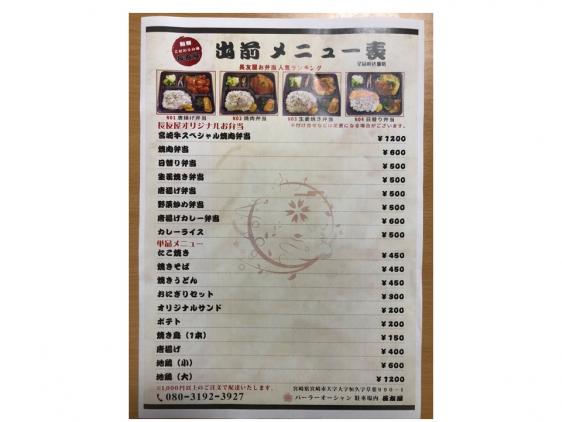 出前 メニュー表
全品税込価格
長友屋お弁当人気ランキング
NO1 唐揚げ弁当 NO2 焼肉弁当 NO3 生姜焼き弁当 NO4 日替り弁当
長友屋オリジナルお弁当
※付け合せなどは変更になる場合がございます。
宮崎牛スペシャル焼肉弁当 ¥1200
焼肉弁当 ¥600
日替り弁当 ¥500
生姜焼き弁当 ¥500
唐揚げ弁当 ¥500
野菜炒め弁当 ¥500
唐揚げカレー弁当 ¥600
カレーライス ¥500
単品メニュー
たこ焼き ¥450
焼きそば ¥450
焼きうどん ¥450
おにぎりセット ¥300
オリジナルサンド ¥200
ポテト ¥200
焼き鳥（1本） ¥150
唐揚げ ¥400
地鶏（小） ¥600
地鶏（大） ¥1200
※1,000円以上のご注文で配達いたします。
080-3192-3927
宮崎県宮崎市大字恒久字草葉990-1
パーラーオーシャン 駐車場内 長友屋